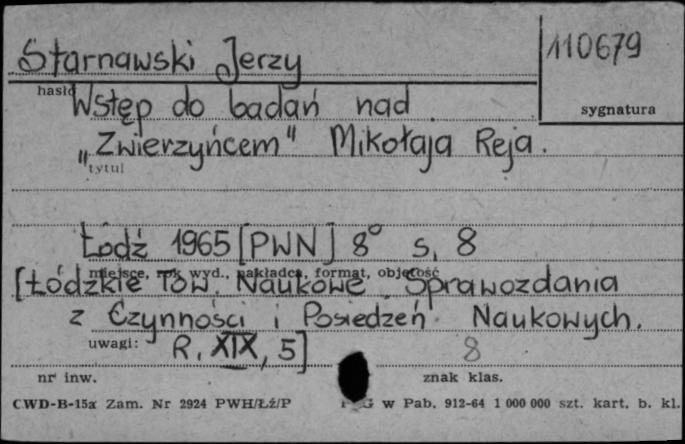 Starnawski Jerzy
110679
hasło
Wstęp do badań nad
sygnatura
„Zwierzyńcem" Mikołaja Reja.
tytuł
Łodź 1965 [PWN] 8° s. 8
miejsce, rok wyd., nakładca, format, objętość
[Łódzkie Tow. Naukowe Sprawozdania
z Czynności i Posiedzeń Naukowych.
uwagi: R. XIX, 5]
8
nr inw.
znak klas.
CWD-B-15a Zam. Nr 2924 PWH/Łź/P
w Pab. 912-64 1 000 000 szt. kart. b. kl.